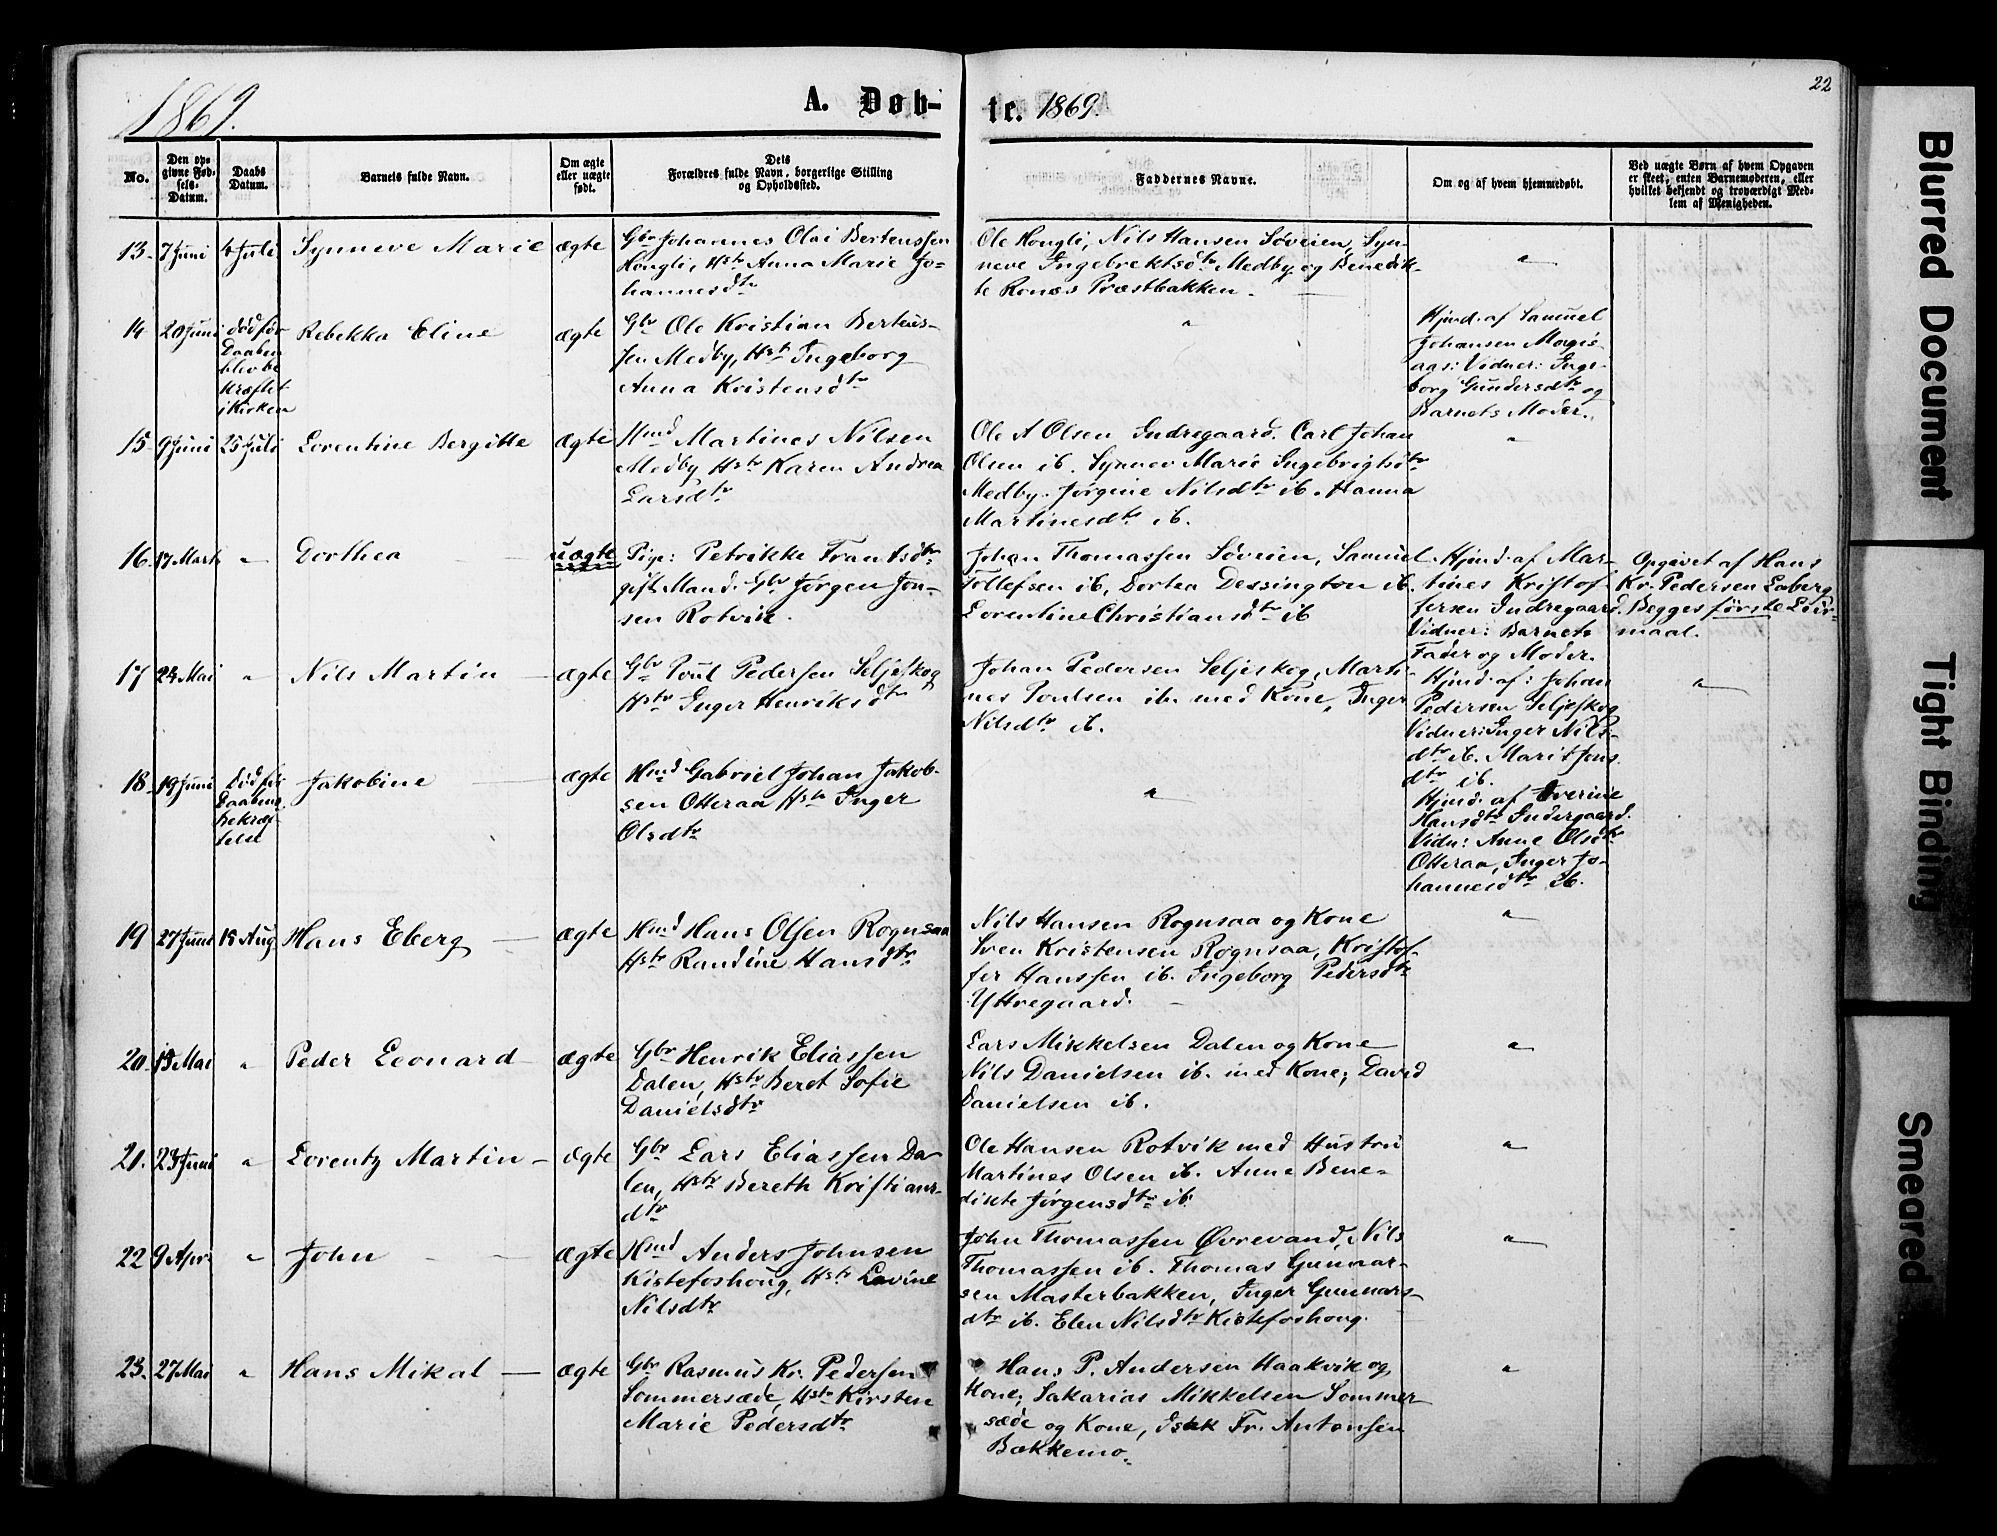 1869.
A. Døb-
No.
Den op-
givne Fød-
sels-
Datum.
Daabs
Datum.
Barnets fulde Navn.
Om ægte
eller uægte
født.
Dets
Forældres fulde Navn, borgerlige Stilling
og Opholdssted.
13. 7 Juni 4 Juli Synneve Marie ægte Gbr Johannes Olai Bertenssen
Hongli, Hstr Anna Marie Jo-
hannesdtr
14 20 Juni død før Rebekka Eline ægte Gbr Ole Kristian Berteus-
Daaben
sen Medby, Hst Ingeborg
blev be
kræftet
Anna Kristensdtr
i Kirken
15. 9 Juni 25 Juli Lorentine Bergitte ægte Hmd Martines Nilsen
Medby Hstr Karen Andrea
Larsdtr
16. 17 Marts " Dorthea uægte Pige: Petrikke Frantsdtr
gift Mand. Gbr Jørgen Jon-
sen Rotvik.
17 24 Mai " Nils Martin ægte Gbr Poul Pedersen Seljeskog
Hstr Inger Henriksdtr
18. 19 Juni Død før Jakobine ægte Hmd Gabriel Johan Jakob-
Daabens
sen Otteraa Hstr Inger
Bekræf-
telse
Olsdtr
19 27 Juni 15 Aug Hans Eberg ægte Hmd Hans Olsen Rognsaa
Hstr Randine Hansdtr
20. 13 Mai " Peder Leonard ægte Gbr Henrik Eliassen
Dalen, Hstr Beret Sofie
Danielsdtr
21. 23 Juni " Lorentz Martin ægte Gbr Lars Eliassen Da-
len, Hstr Bereth Kristians-
dtr
22 9 Apr " John ægte Hmd Anders Johnsen
Kistefoshoug, Hstr Lavine
Nilsdtr
23. 27 Mai " Hans Mikal ægte Gbr Rasmus Kr. Pedersen
Sommersæde, Hstr Kirsten
Marie Pedersdtr
22
te. 1869.
Faddernes Navne.
Om og af hvem hjemmedøbt.
Ved uægte Børn af hvem Opgaven
er skeet, enten Barnemoderen, eller
hvilket bekjendt og troværdigt Med-
lem af Menigheden.
Ole Hongli, Nils Hansen Søveien, Syn-
neve Ingebrektsdtr Medby og Benedik-
te Ronæs Præstbakken.
"
"
Hjmd. af Samuel
Johansen
aas: Vidner: Inge-
borg Gundersdtr og
Barnets Moder.
Ole A Olsen Indregaard. Carl Johan
Olsen ib. Synnev Marie Ingebrigtsdtr
Medby. Jørgine Nilsdtr ib. Hanna
Martinesdtr ib.
"
Johan Thomassen Søveien, Samuel
Tollefsen ib, Dortea Dessington ib.
Lorentine Christiansdtr ib
Hjmd. af Mar-
tines Kristof-
fersen Indregaard.
Vidner: Barnets
Fader og Moder.
Opgivet af Hans
Kr. Pedersen Laberg
Begges første Leier-
maal.
Johan Pedersen Seljeskog, Marti-
nes Poulsen ib. med Kone, Inger
Nilsdtr ib.
Hjmd. af: Johan
Pedersen Seljeskog
Vidner: Inger Nils-
dtr ib. Marit Jons
dtr ib.
"
"
Hjmd. af Sverine
Hansdtr Indergaard.
Vidn: Anne Olsdtr
Otteraa, Inger Jo-
hannesdtr ib.
Nils Hansen Rognsaa og Kone
Sven Kristensen Rognsaa, Kristof-
fer Hanssen ib. Ingeborg Pedersdtr
Yttregaard.
"
Lars Mikkelsen Dalen og Kone
Nils Danielsen ib. med Kone, David
Danielsen ib.
"
Ole Hansen Rotvik med Hustru
Martines Olsen ib. Anne Bene-
dikte Jørgensdtr ib.
"
John Thomassen Øvrevand, Nils
Thomassen ib. Thomas Gunnar-
sen Masterbakken, Inger Gunnars-
dtr ib. Elen Nilsdtr Kistefoshoug.
"
Hans P. Andersen Haakvik og
Kone, Sakarias Mikkelsen Sommer
sæde og Kone, Isak Fr. Antonsen
Bækkemo.
"
Blurred Document
Tight Binding
Smeared